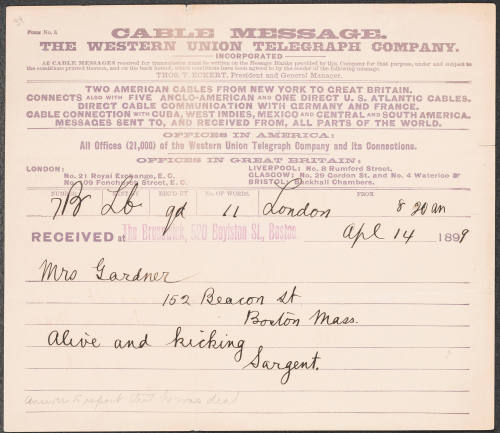 Form No. 
CABLE MESSAGE.
THE WESTERN UNION TELEGRAPH COMPANY.
INCORPORATED
All CABLE MESSAGES received for transmission must be written on the Message Blanks provided by this Company for that purpose, under and subject to
the conditions printed thereon, and on the back hereof, which conditions have been agreed to by the sender of the following message.
THOS. T. ECKERT, President and General Manager.
TWO AMERICAN CABLES FROM NEW YORK TO GREAT BRITAIN.
CONNECTS ALSO WITH FIVE ANGLO-AMERICAN AND ONE DIRECT U. S. ATLANTIC CABLES.
DIRECT CABLE COMMUNICATION WITH GERMANY AND FRANCE.
CABLE CONNECTION WITH CUBA, WEST INDIES, MEXICO AND CENTRAL AND SOUTH AMERICA.
MESSAGES SENT TO, AND RECEIVED FROM, ALL PARTS OF THE WORLD.
OFFICES IN AMERICA:
All Offices (21,000) of the Western Union Telegraph Company and Its Connections.
OFFICES IN GREAT BRITAIN:
LONDON: LIVERPOOL: No. 8 Rumford Street.
No. 21 Royal Exchange, E. C. GLASGOW: No. 29 Gordon St. and No. 4 Waterloo St
No. 109 Fenchurch Street, E. C. BRISTOL: Backhall Chambers.
NUMBER SENT BY REC'D BY No. OF WORDS. FROM
7B Lb gd 11 London 8 20 am
RECEIVED at The Brunswick, 520 Boylston St., Boston Apl 14 1899
Mrs Gardner
152 Beacon St
Boston Mass.
Alive and kicking
Sargent.
answer to report that he was dead